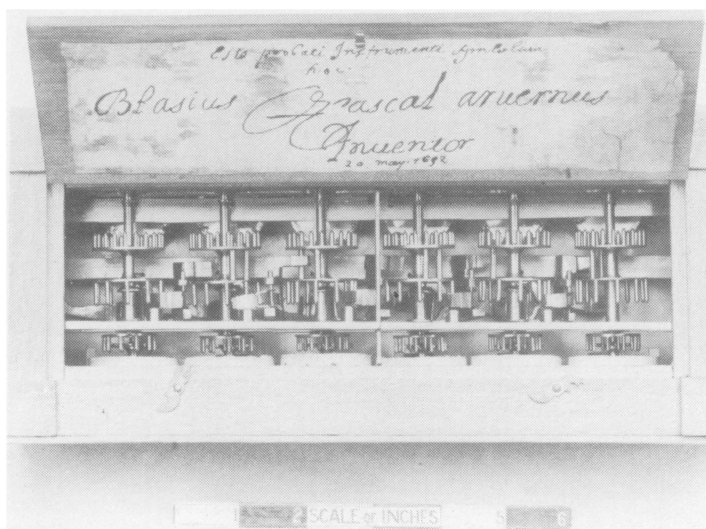 Esto probati Instrumenti Symbolum
hoc.
Blasius Pascal aruernus
Inuentor
20 may. 1652
1 2 SCALE OF INCHES 5 6